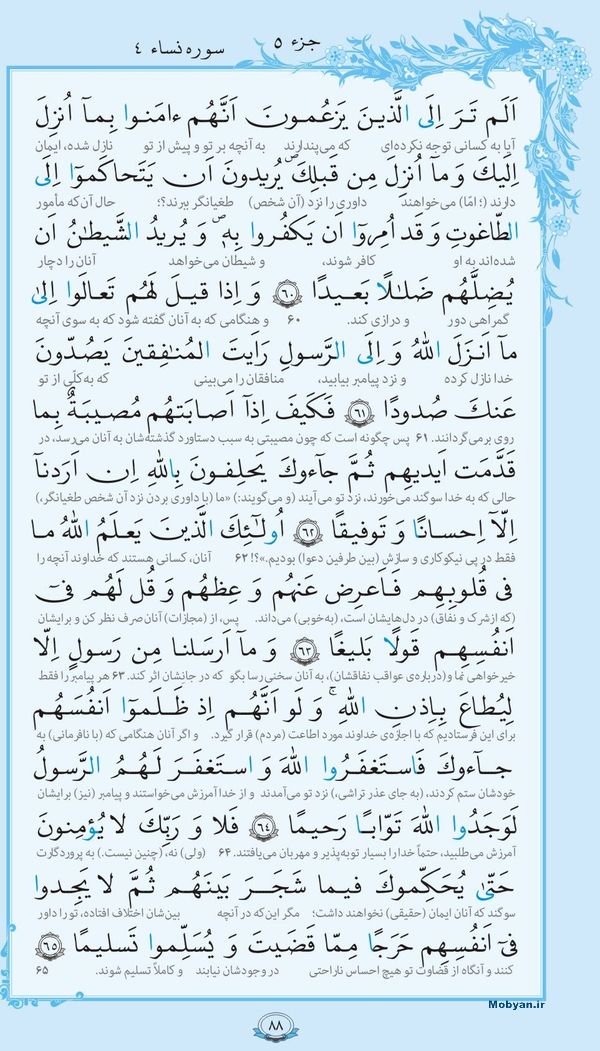 جزء ۵
سوره نساء ۴
اَلَم تَرَ اِلَى الَّذينَ يَزعُمونَ اَنَّهُم ءامَنوا بِمآ اُنزِلَ
آیا به کسانی توجه نکرده‌ای که می‌پندارند به آنچه بر تو و پیش از تو نازل شده، ایمان
اِلَيكَ وَ مآ اُنزِلَ مِن قَبلِكَ ۖ يُريدونَ اَن يَتَحاكَموٓا اِلَى
دارند (؛ امّا) می‌خواهند داوری را نزد (آن شخص) طغیانگر ببرند؟! حال آن‌که مأمور
الطّاغوتِ وَ قَد اُمِروٓا اَن يَكفُروا بِهٖ ۖ وَ يُريدُ الشَّيطٰنُ اَن
شده‌اند به او کافر شوند، و شیطان می‌خواهد آنان را دچار
يُضِلَّهُم ضَلٰلًا بَعيدًا ﴿۶۰﴾ وَ اِذا قيلَ لَهُم تَعالَوا اِلىٰ
گمراهی دور و درازی کند. ۶۰ و هنگامی که به آنان گفته شود که به سوی آنچه
مآ اَنزَلَ اللهُ وَ اِلَى الرَّسولِ رَاَيتَ المُنٰفِقينَ يَصُدّونَ
خدا نازل کرده و نزد پیامبر بیایید، منافقان را می‌بینی که به‌کلّی از تو
عَنكَ صُدودًا ﴿۶۱﴾ فَكَيفَ اِذآ اَصابَتهُم مُصيبَةٌ بِما
روی برمی‌گردانند. ۶۱ پس چگونه است که چون مصیبتی به سبب دستاورد گذشته‌شان به آنان می‌رسد، در
قَدَّمَت اَيديهِم ثُمَّ جآءوكَ يَحلِفونَ بِاللهِ اِن اَرَدنآ
حالی که به خدا سوگند می‌خورند، نزد تو می‌آیند (و می‌گویند:) «ما (با داوری بردن نزد آن شخص طغیانگر،)
اِلّآ اِحسانًا وَ تَوفيقًا ﴿۶۲﴾ اُولٰٓئِكَ الَّذينَ يَعلَمُ اللهُ ما
فقط در پی نیکوکاری و سازش (بین طرفین دعوا) بودیم.»؟! ۶۲ آنان، کسانی هستند که خداوند آنچه را
فى قُلوبِهِم فَاَعرِض عَنهُم وَ عِظهُم وَ قُل لَهُم فىٓ
(که از شرک و نفاق) در دل‌هایشان است، (به‌خوبی) می‌داند. پس، از (مجازات) آنان صرف نظر کن و برایشان
اَنفُسِهِم قَولًا بَليغًا ﴿۶۳﴾ وَ مآ اَرسَلنا مِن رَسولٍ اِلّا
خیرخواهی نما و (درباره‌ی عواقب نفاقشان)، به آنان سخنی رسا بگو که در جانشان اثر کند. ۶۳ هر پیامبر را فقط
لِيُطاعَ بِاِذنِ اللهِ ۚ وَ لَو اَنَّهُم اِذ ظَلَموٓا اَنفُسَهُم
برای این فرستادیم که با اجازه‌ی خداوند مورد اطاعت (مردم) قرار گیرد. و اگر آنان هنگامی که (با نافرمانی) به
جآءوكَ فَاستَغفَرُوا اللهَ وَ استَغفَرَ لَهُمُ الرَّسولُ
خودشان ستم کردند، (به جای عذر تراشی،) نزد تو می‌آمدند و از خدا آمرزش می‌خواستند و پیامبر (نیز) برایشان
لَوَجَدُوا اللهَ تَوّابًا رَحيمًا ﴿۶۴﴾ فَلا وَ رَبِّكَ لا يُؤمِنونَ
آمرزش می‌طلبید، حتماً خدا را بسیار توبه‌پذیر و مهربان می‌یافتند. ۶۴ (ولی) نه، (چنین نیست.) به پروردگارت
حَتّىٰ يُحَكِّموكَ فيما شَجَرَ بَينَهُم ثُمَّ لا يَجِدوا
سوگند که آنان ایمان (حقیقی) نخواهند داشت؛ مگر این‌که در آنچه بین‌شان اختلاف افتاده، تو را داور
فىٓ اَنفُسِهِم حَرَجًا مِمّا قَضَيتَ وَ يُسَلِّموا تَسليمًا ﴿۶۵﴾
کنند و آنگاه از قضاوت تو هیچ احساس ناراحتی در وجودشان نیابند و کاملاً تسلیم شوند. ۶۵
Mobyan.ir
۸۸